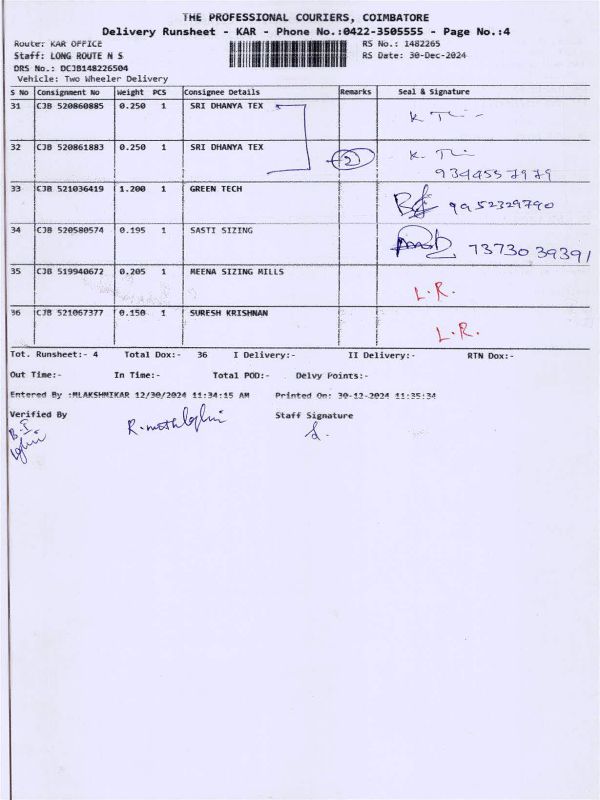 THE PROFESSIONAL COURIERS, COIMBATORE
Delivery Runsheet - KAR - Phone No.:0422-3505555 - Page No.:4
Route: KAR OFFICE RS No.: 1482265
Staff: LONG ROUTE N S RS Date: 30-Dec-2024
DRS No.: DCJB148226504
Vehicle: Two Wheeler Delivery
S No Consignment No Weight PCS Consignee Details Remarks Seal & Signature
31 CJB 520860885 0.250 1 SRI DHANYA TEX
32 CJB 520861883 0.250 1 SRI DHANYA TEX 2
9344557979
33 CJB 521036419 1.200 1 GREEN TECH 9952329790
34 CJB 520580574 0.195 1 SASTI SIZING 7373039391
35 CJB 519940672 0.205 1 MEENA SIZING MILLS L.R.
36 CJB 521067377 0.150 1 SURESH KRISHNAN L.R.
Tot. Runsheet:- 4 Total Dox:- 36 I Delivery:- II Delivery:- RTN Dox:-
Out Time:- In Time:- Total POD:- Delvy Points:-
Entered By :MLAKSHMIKAR 12/30/2024 11:34:15 AM Printed On: 30-12-2024 11:35:34
Verified By Staff Signature